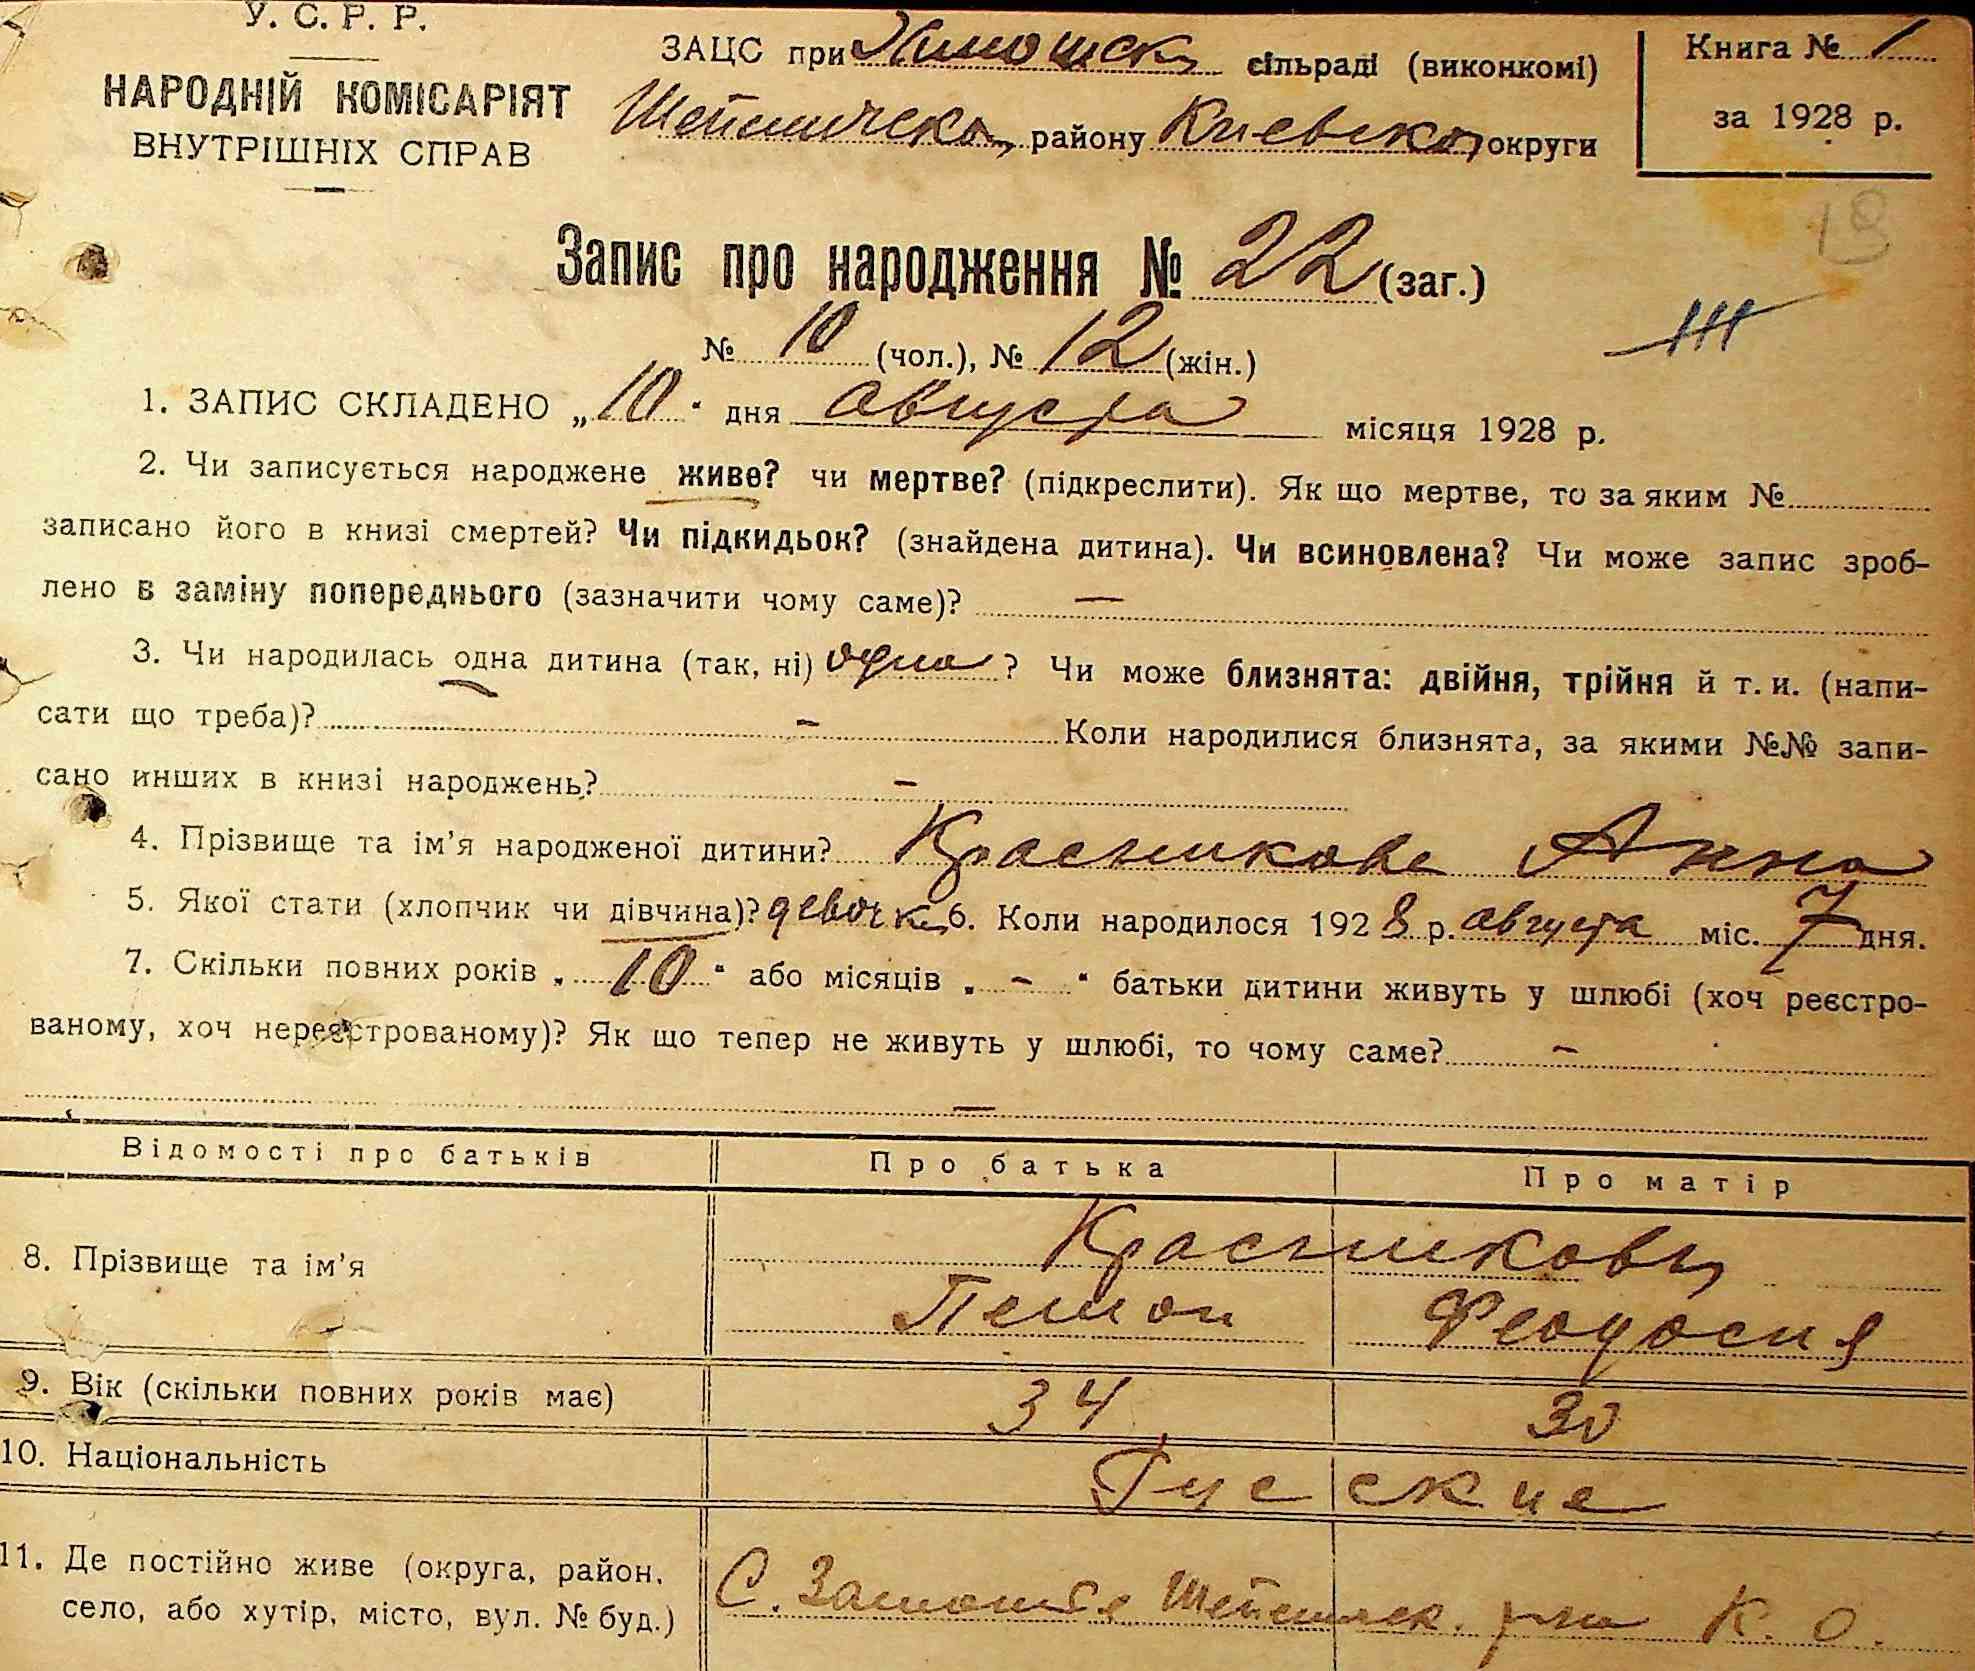 У. С. Р. Р.
НАРОДНІЙ КОМІСАРІЯТ
ВНУТРІШНІХ СПРАВ
ЗАЦС при сільраді (виконкомі)
району Киевской округи
Книга № 1
за 1928 р.
18
Запис про народження № 22 (заг.)
№ 10 (чол.), № 12 (жін.)
1. ЗАПИС СКЛАДЕНО „10“ дня августа місяця 1928 р.
2. Чи записується народжене живе? чи мертве? (підкреслити). Як що мертве, то за яким №
записано його в книзі смертей? Чи підкидьок? (знайдена дитина). Чи всиновлена? Чи може запис зроб-
лено в заміну попереднього (зазначити чому саме)? —
3. Чи народилась одна дитина (так, ні) одна? Чи може близнята: двійня, трійня й т. и. (напи-
сати що треба)? - Коли народилися близнята, за якими №№ запи-
сано инших в книзі народжень? -
4. Прізвище та ім’я народженої дитини? Красникова Анна
5. Якої стати (хлопчик чи дівчина)? девочка 6. Коли народилося 1928 р. августа міс. 7 дня.
7. Скільки повних років „10“ або місяців „-“ батьки дитини живуть у шлюбі (хоч реєстро-
ваному, хоч нереєстрованому)? Як що тепер не живуть у шлюбі, то чому саме? -
—
Відомості про батьків Про батька Про матір
Красниковы
8. Прізвище та ім’я
Феодосия
9. Вік (скільки повних років має) 34 30
10. Національність Русские
11. Де постійно живе (округа, район, С. Замошье р-на К. О.
село, або хутір, місто, вул. № буд.)